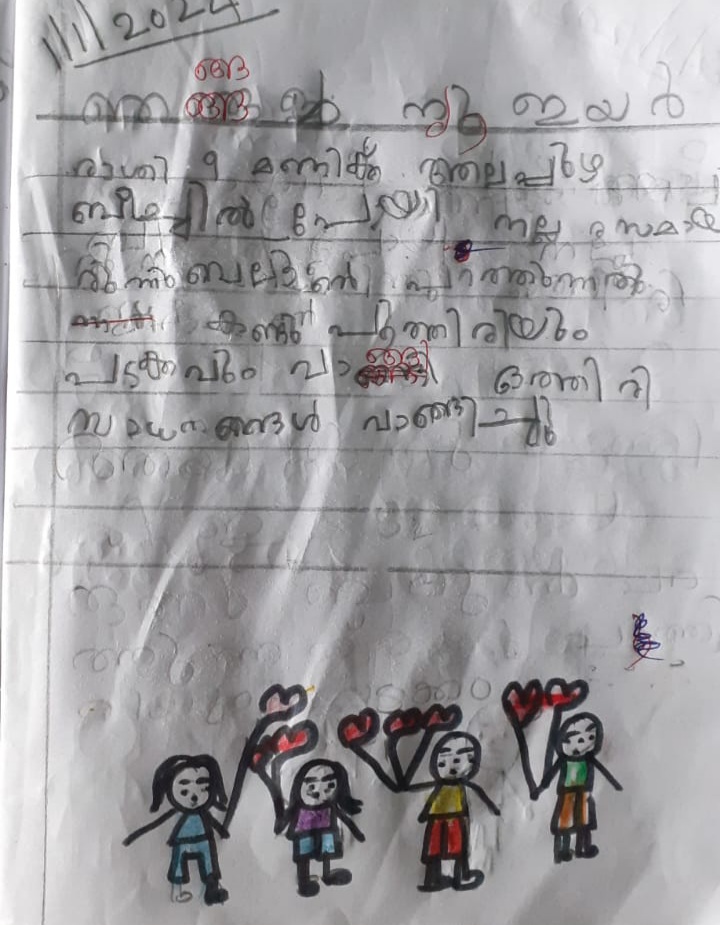 1/1/2024
ങ്ങ
ഞങ്ങൾ ന്യൂ ഇയർ
രാത്രി 9 മണിക്ക് ആലപ്പുഴ
ബീച്ചിൽ പോയി നല്ല രസമായ
രുന്നു ബലൂൺ
കണ്ടു പൂത്തിരിയും
പടക്കവും വാങ്ങി ഒത്തിരി
സാധനങ്ങൾ വാങ്ങിച്ചു